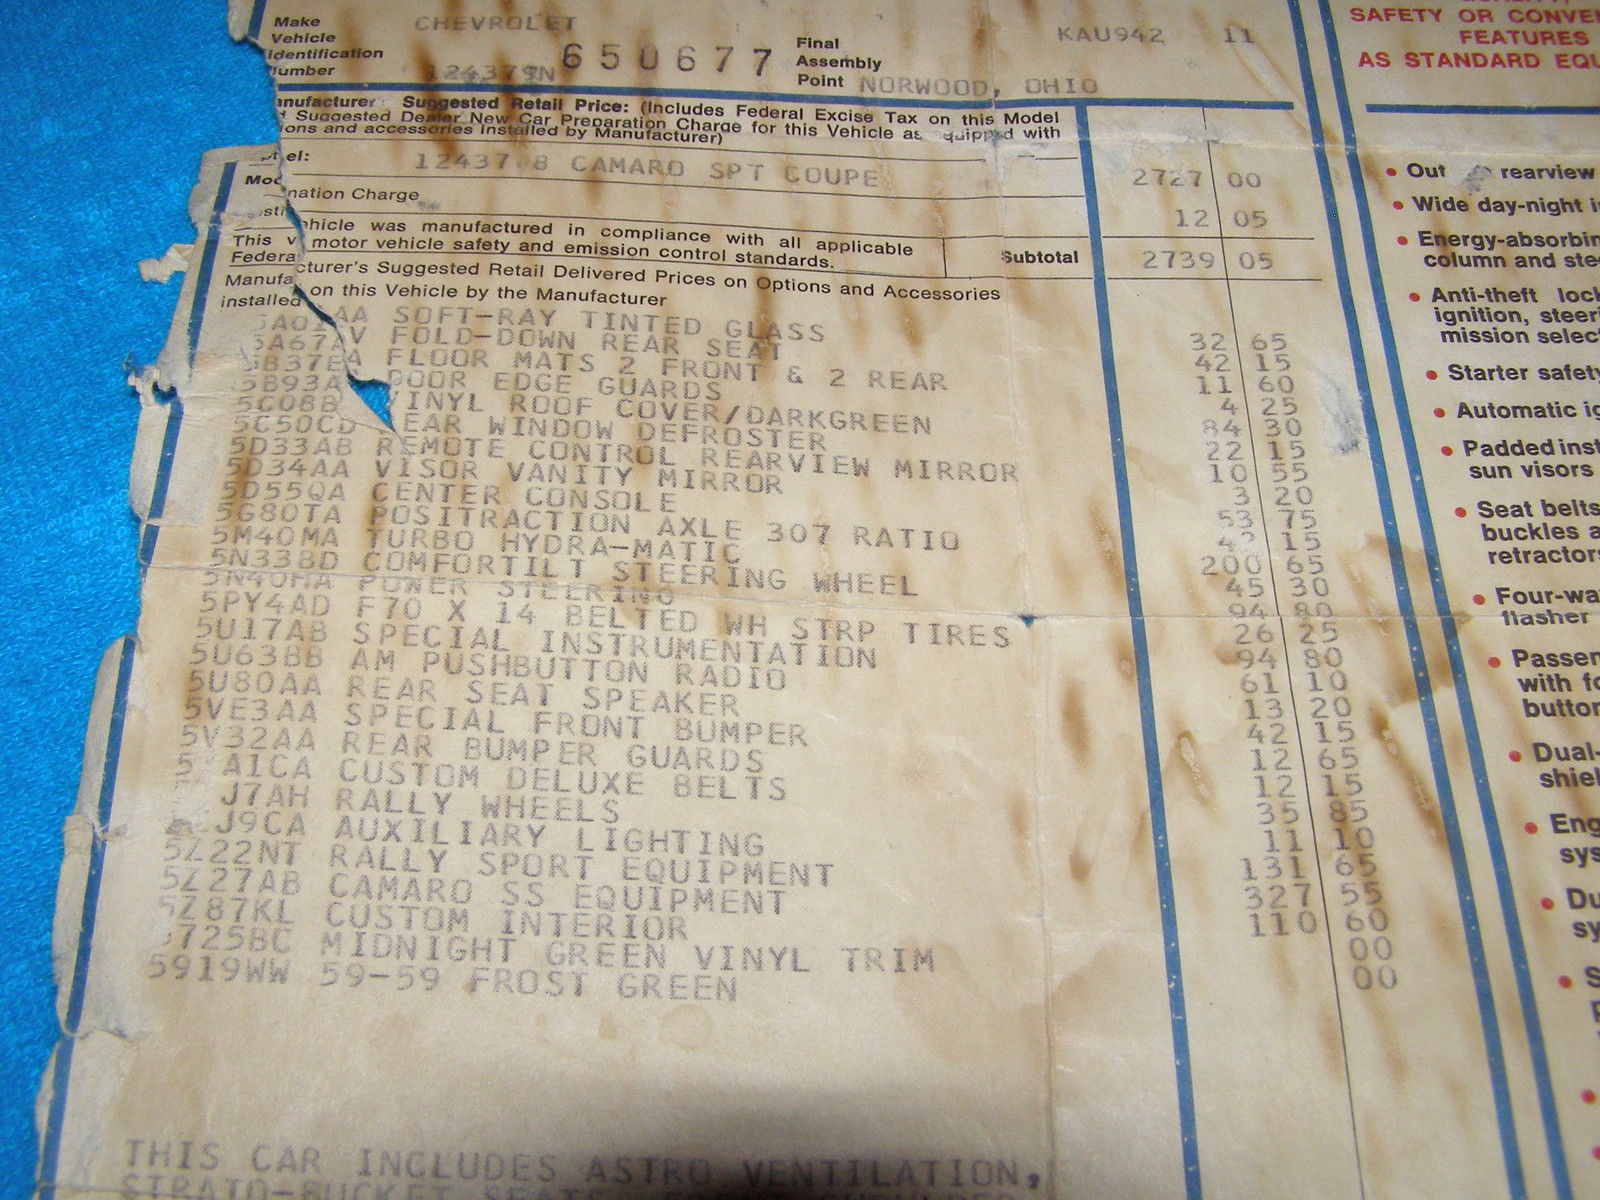 SAFETY OR CONVEN
FEATURES
AS STANDARD EQU
Make CHEVROLET
Vehicle
Identification
Number 124379N 650677
Final
Assembly
Point NORWOOD, OHIO
KAU942 11
anufacturer Suggested Retail Price: (Includes Federal Excise Tax on this Model
Suggested Dealer New Car Preparation Charge for this Vehicle as equipped with
ions and accessories Installed by Manufacturer)
el: 12437 8 CAMARO SPT COUPE 2727 00
nation Charge 12 05
This vehicle was manufactured in compliance with all applicable
Federal motor vehicle safety and emission control standards. Subtotal 2739 05
Manufacturer's Suggested Retail Delivered Prices on Options and Accessories
installed on this Vehicle by the Manufacturer
5A01AA SOFT-RAY TINTED GLASS 32 65
5A67AV FOLD-DOWN REAR SEAT 42 15
5B37EA FLOOR MATS 2 FRONT & 2 REAR 11 60
5B93A DOOR EDGE GUARDS 4 25
5C08B VINYL ROOF COVER/DARKGREEN 84 30
5C50CD REAR WINDOW DEFROSTER 22 15
5D33AB REMOTE CONTROL REARVIEW MIRROR 10 55
5D34AA VISOR VANITY MIRROR 3 20
5D55QA CENTER CONSOLE 53 75
5G80TA POSITRACTION AXLE 307 RATIO 42 15
5M40MA TURBO HYDRA-MATIC 200 65
5N33BD COMFORTILT STEERING WHEEL 45 30
5N40HA POWER STEERING 94 80
5PY4AD F70 X 14 BELTED WH STRP TIRES 26 25
5U17AB SPECIAL INSTRUMENTATION 94 80
5U63BB AM PUSHBUTTON RADIO 61 10
5U80AA REAR SEAT SPEAKER 13 20
5VE3AA SPECIAL FRONT BUMPER 42 15
5V32AA REAR BUMPER GUARDS 12 65
5 A1CA CUSTOM DELUXE BELTS 12 15
J7AH RALLY WHEELS 35 85
J9CA AUXILIARY LIGHTING 11 10
5Z22NT RALLY SPORT EQUIPMENT 131 65
5Z27AB CAMARO SS EQUIPMENT 327 55
5Z87KL CUSTOM INTERIOR 110 60
725BC MIDNIGHT GREEN VINYL TRIM 00
5919WW 59-59 FROST GREEN 00
THIS CAR INCLUDES ASTRO VENTILATION,
STRATO-BUCKET SEATS,
• Out rearview
• Wide day-night i
• Energy-absorbin
column and stee
• Anti-theft lock
ignition, steeri
mission select
• Starter safety
• Automatic ig
• Padded inst
sun visors
• Seat belts
buckles a
retractors
• Four-wa
flasher
• Passen
with fo
button
• Dual-
shiel
• Eng
sys
• Du
sy
• S